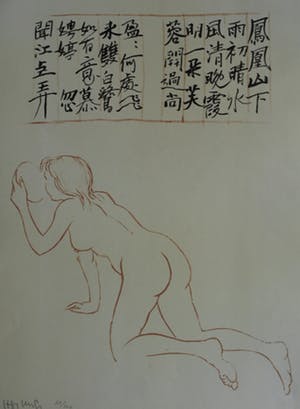 鳳凰山下
雨初晴水
風清晚霞
明一朵芙
蓉開過尚
盈〻何處飛
來雙白鷺
如有意慕
娉婷忽
聞江上弄